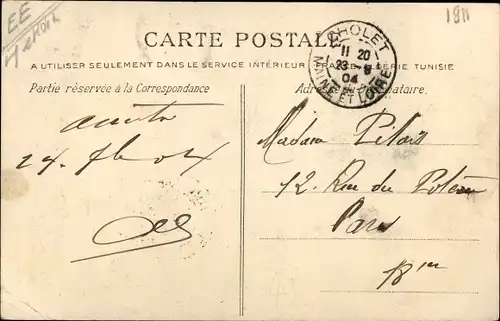 EE
1911
CARTE POSTALE
A UTILISER SEULEMENT DANS LE SERVICE INTÉRIEUR FRANCE ALGÉRIE TUNISIE
CHOLET
11 20
23 - 9
04
MAINE ET LOIRE
Partie réservée à la Correspondance
Adresse du Destinataire.
24. 7bre 04
Madame
12. Rue du
Paris